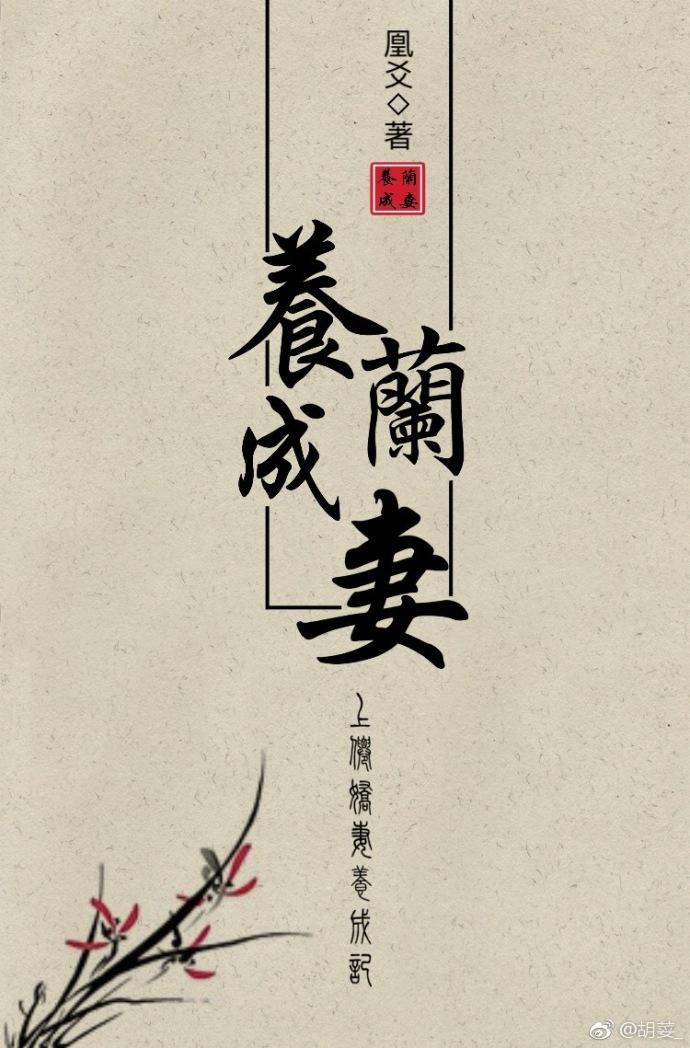 凰爻◇著
蘭妻養成
蘭妻
養成
上僊嬌妻養成記
@胡荽_